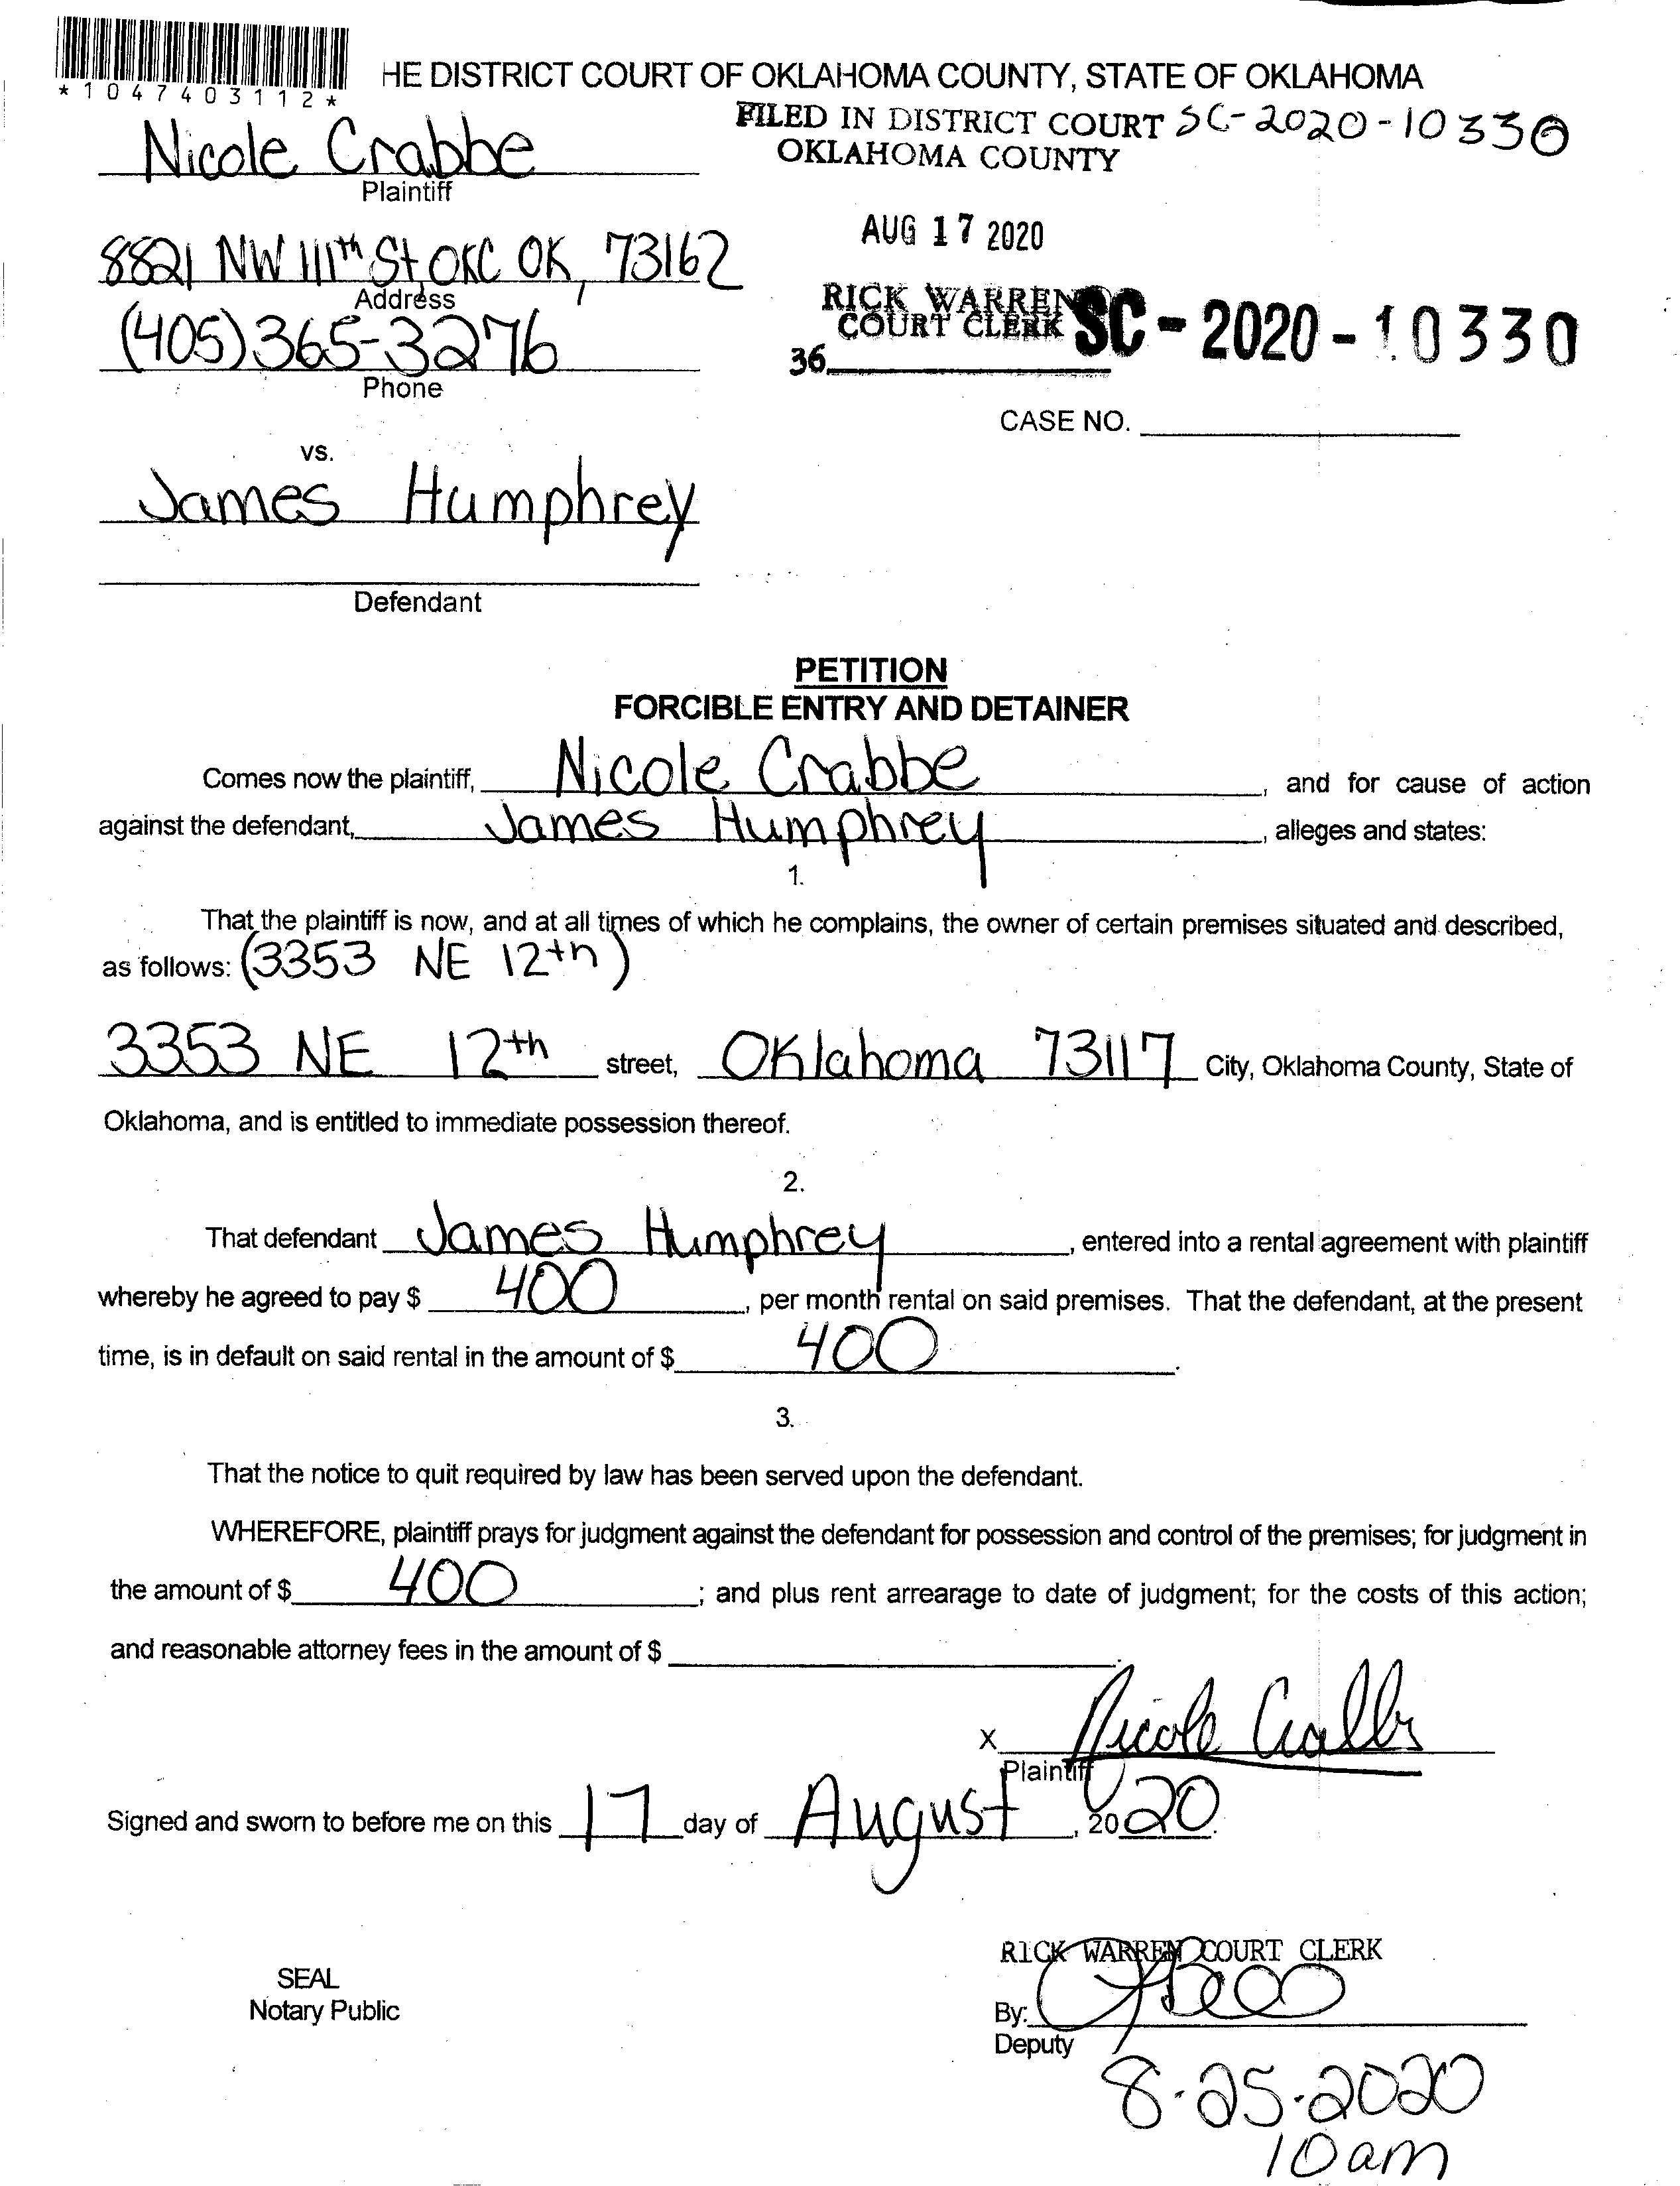 *1047403112*
HE DISTRICT COURT OF OKLAHOMA COUNTY, STATE OF OKLAHOMA
FILED IN DISTRICT COURT SC-2020-10330
OKLAHOMA COUNTY
Nicole Crabbe
Plaintiff
AUG 17 2020
8821 NW 111th St OKC OK, 73162
Address
RICK WARREN
COURT CLERK
SC-2020-10330
(405)365-3276
Phone
36
CASE NO.
vs.
James Humphrey
Defendant
PETITION
FORCIBLE ENTRY AND DETAINER
Comes now the plaintiff, Nicole Crabbe, and for cause of action
against the defendant, James Humphrey, alleges and states:
1.
That the plaintiff is now, and at all times of which he complains, the owner of certain premises situated and described,
as follows: (3353 NE 12th)
3353 NE 12th street, Oklahoma 73117 City, Oklahoma County, State of
Oklahoma, and is entitled to immediate possession thereof.
2.
That defendant James Humphrey, entered into a rental agreement with plaintiff
whereby he agreed to pay $ 400, per month rental on said premises. That the defendant, at the present
time, is in default on said rental in the amount of $ 400.
3.
That the notice to quit required by law has been served upon the defendant.
WHEREFORE, plaintiff prays for judgment against the defendant for possession and control of the premises; for judgment in
the amount of $ 400; and plus rent arrearage to date of judgment; for the costs of this action;
and reasonable attorney fees in the amount of $ .
X Nicole Crabbe
Plaintiff
Signed and sworn to before me on this 17 day of August, 2020.
RICK WARREN COURT CLERK
SEAL
Notary Public
By:
Deputy
8-25-2020
10am